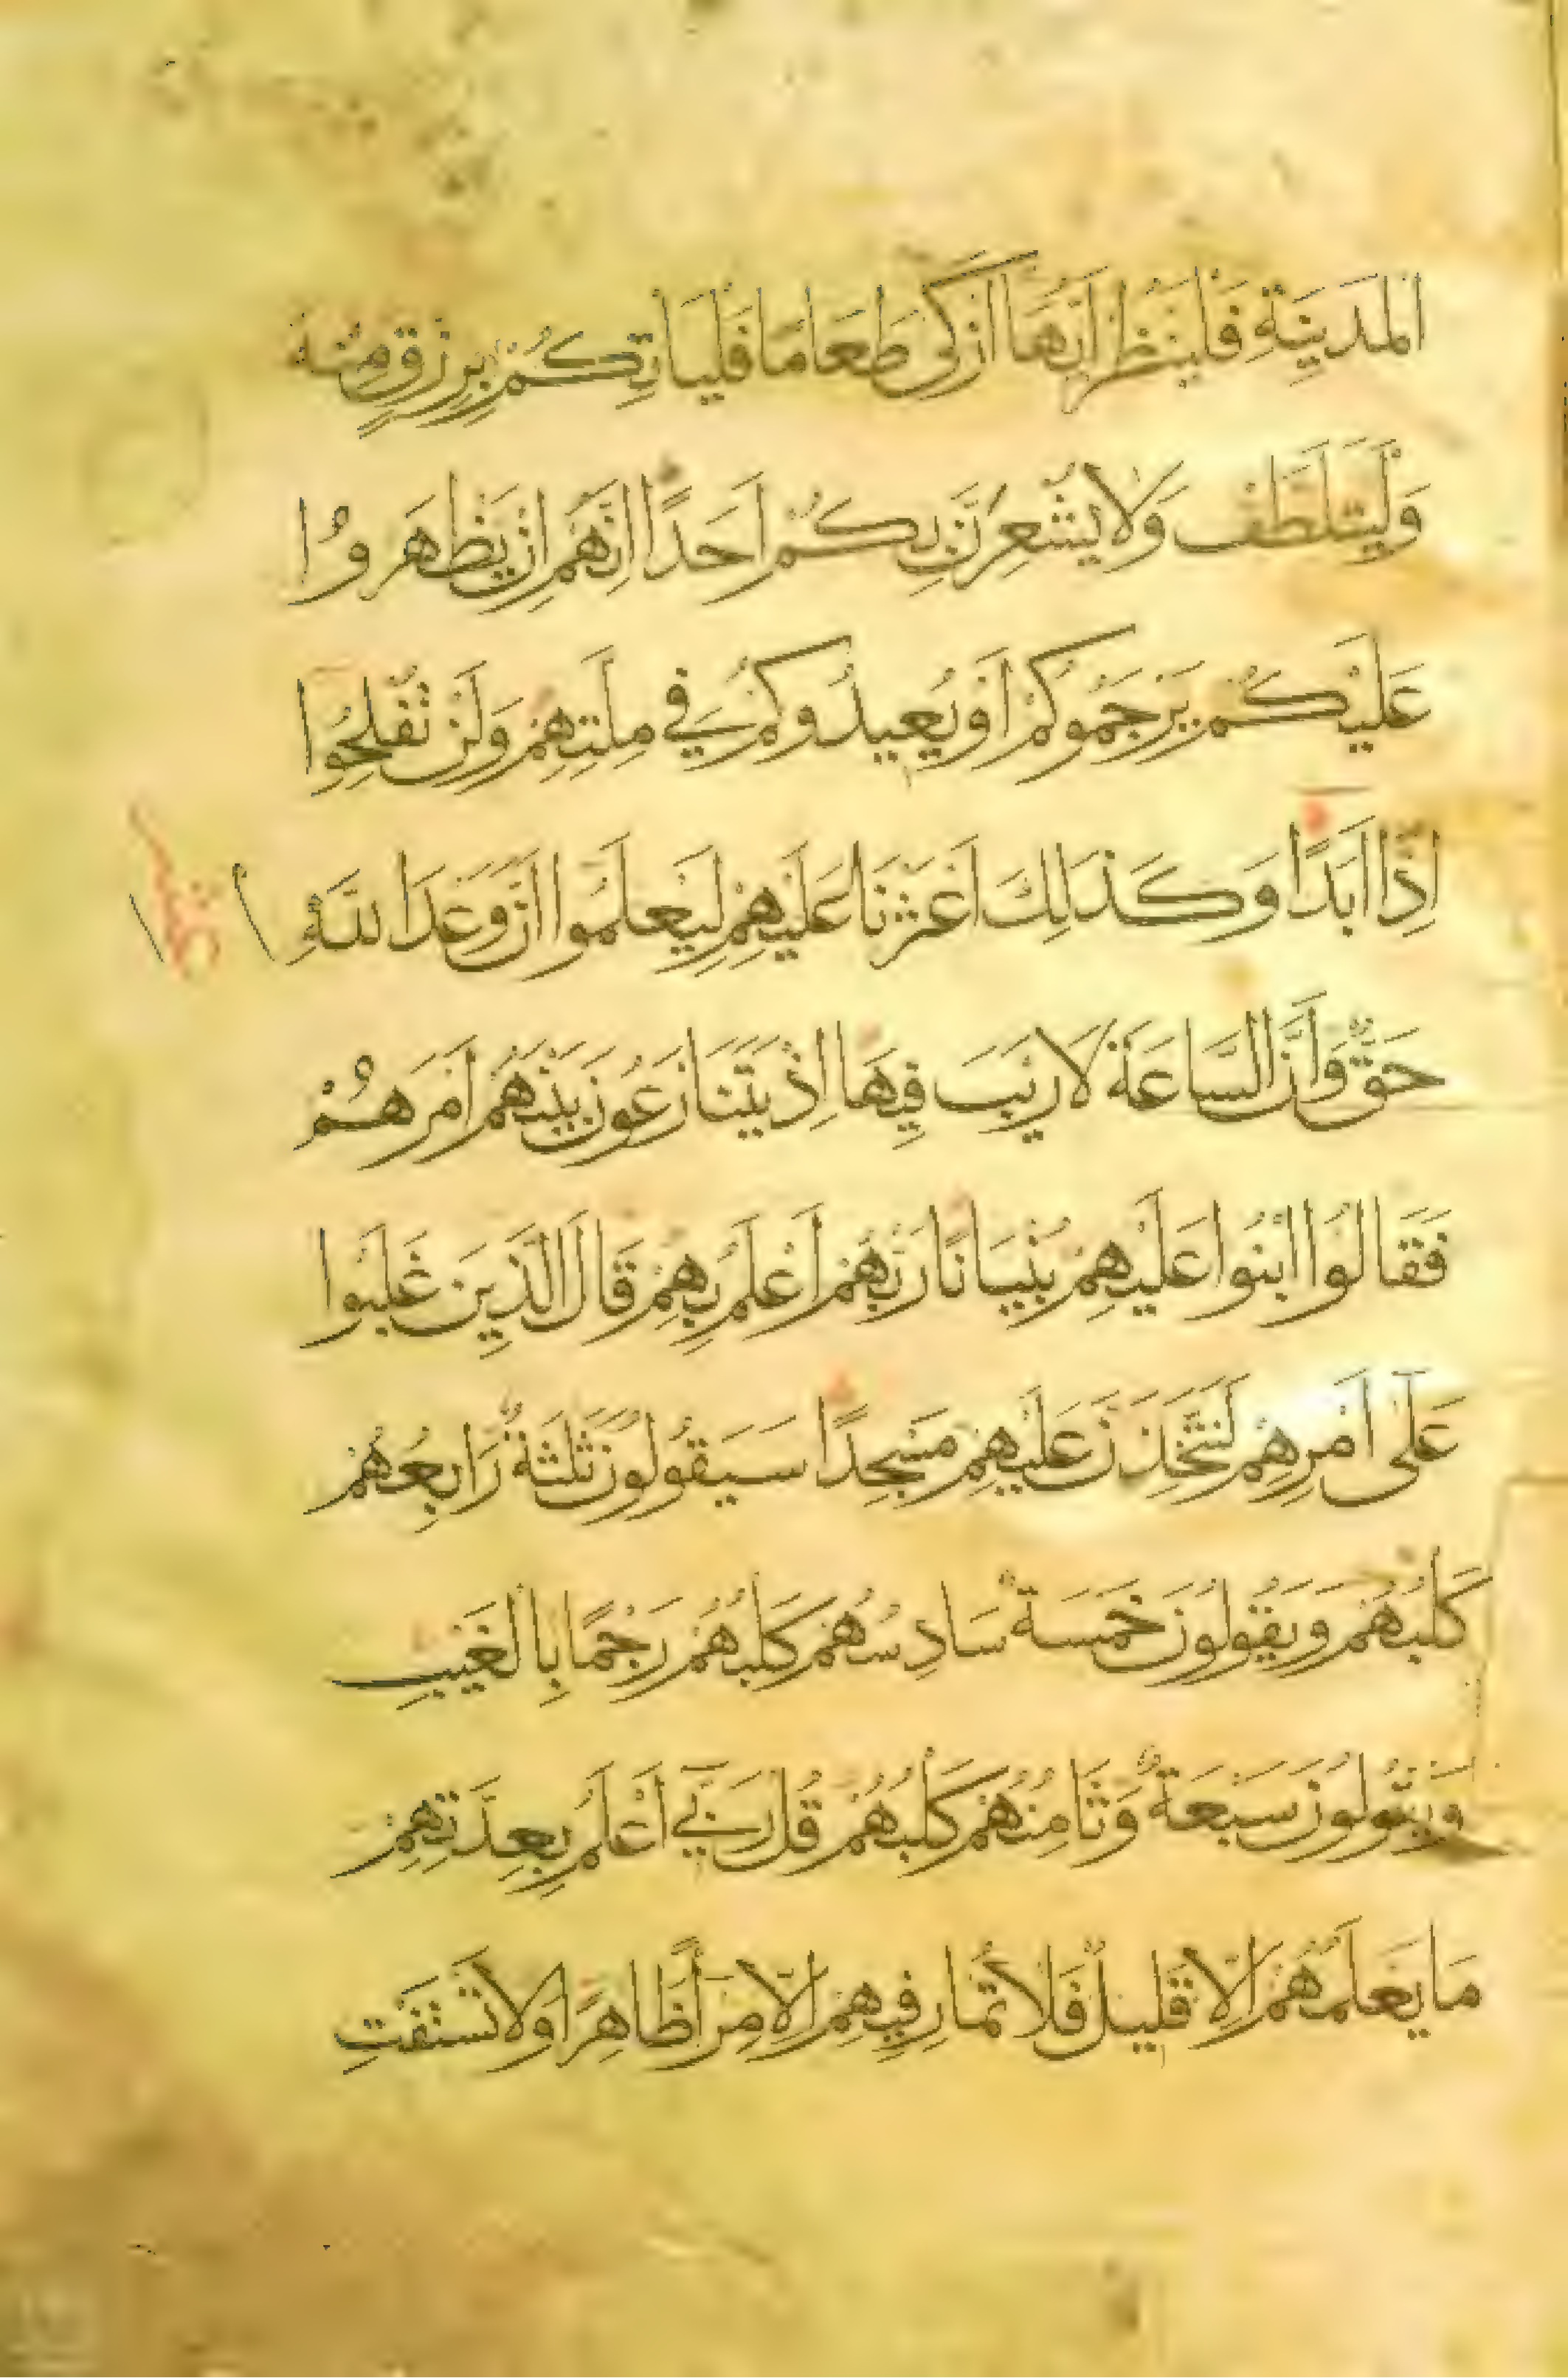 اَلْمَدِينَةِ فَلْيَنْظُرْ اَيُّهَا اَزْكَى طَعَامًا فَلْيَأْتِكُمْ بِرِزْقٍ مِنْهُ
وَلْيَتَلَطَّفْ وَلَا يُشْعِرَنَّ بِكُمْ اَحَدًا اِنَّهُمْ اِنْ يَظْهَرُوا
عَلَيْكُمْ يَرْجُمُوكُمْ اَوْ يُعِيدُوكُمْ فِي مِلَّتِهِمْ وَلَنْ تُفْلِحُوا
اِذًا اَبَدًا وَكَذَالِكَ اَعْثَرْنَا عَلَيْهِمْ لِيَعْلَمُوا اَنَّ وَعْدَ اللّٰهِ
حَقٌّ وَاَنَّ السَّاعَةَ لَا رَيْبَ فِيهَا اِذْ يَتَنَازَعُونَ بَيْنَهُمْ اَمْرَهُمْ
فَقَالُوا ابْنُوا عَلَيْهِمْ بُنْيَانًا رَبُّهُمْ اَعْلَمُ بِهِمْ قَالَ الَّذِينَ غَلَبُوا
عَلَى اَمْرِهِمْ لَنَتَّخِذَنَّ عَلَيْهِمْ مَسْجِدًا سَيَقُولُونَ ثَلٰثَةٌ رَابِعُهُمْ
كَلْبُهُمْ وَيَقُولُونَ خَمْسَةٌ سَادِسُهُمْ كَلْبُهُمْ رَجْمًا بِالْغَيْبِ
وَيَقُولُونَ سَبْعَةٌ وَثَامِنُهُمْ كَلْبُهُمْ قُلْ رَبِّي اَعْلَمُ بِعِدَّتِهِمْ
مَا يَعْلَمُهُمْ اِلَّا قَلِيلٌ فَلَا تُمَارِ فِيهِمْ اِلَّا مِرَآءً ظَاهِرًا وَلَا تَسْتَفْتِ